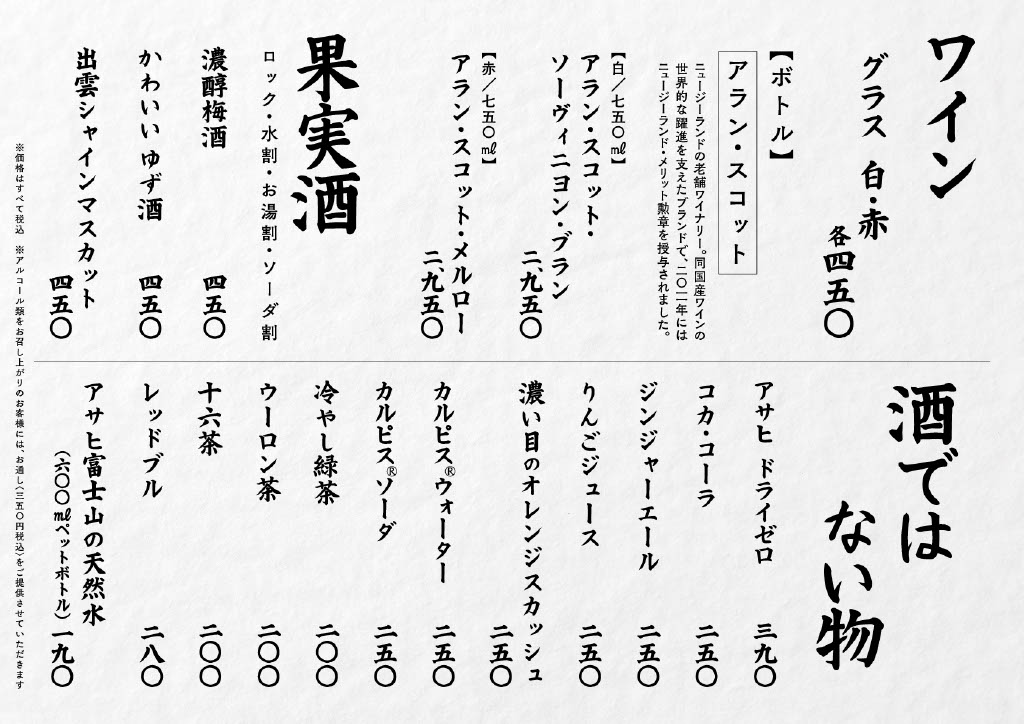 ワイン
グラス 白・赤
各四五〇
【ボトル】
アラン・スコット
ニュージーランドの老舗ワイナリー。同国産ワインの
世界的な躍進を支えたブランドで、二〇一一年には
ニュージーランド・メリット勲章を授与されました。
【白／七五〇㎖】
アラン・スコット・
ソーヴィニヨン・ブラン
二、九五〇
【赤／七五〇㎖】
アラン・スコット・メルロー
二、九五〇
果実酒
ロック・水割・お湯割・ソーダ割
濃醇梅酒
四五〇
かわいいゆず酒
四五〇
出雲シャインマスカット
四五〇
酒では
ない物
アサヒ ドライゼロ
三九〇
コカ・コーラ
二五〇
ジンジャーエール
二五〇
りんごジュース
二五〇
濃い目のオレンジスカッシュ
二五〇
カルピス®ウォーター
二五〇
カルピス®ソーダ
二五〇
冷やし緑茶
二〇〇
ウーロン茶
二〇〇
十六茶
二〇〇
レッドブル
二八〇
アサヒ富士山の天然水
（六〇〇㎖ペットボトル）一九〇
※価格はすべて税込 ※アルコール類をお召し上がりのお客様には、お通し（三五〇円税込）をご提供させていただきます